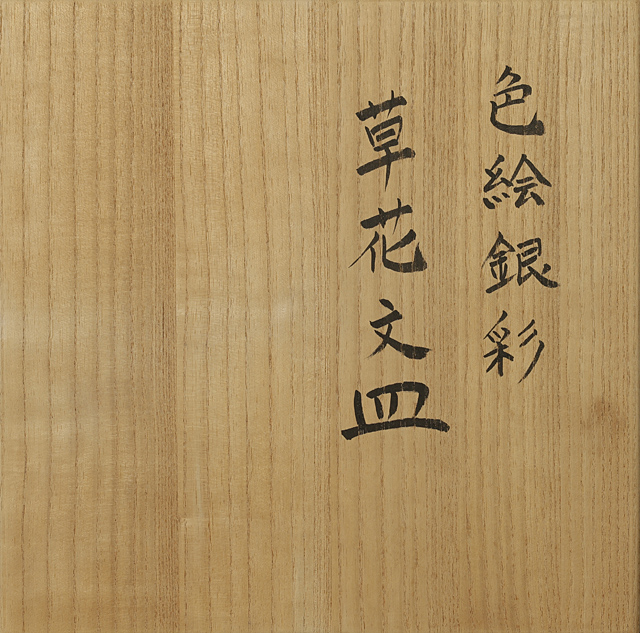 色絵銀彩
草花文皿